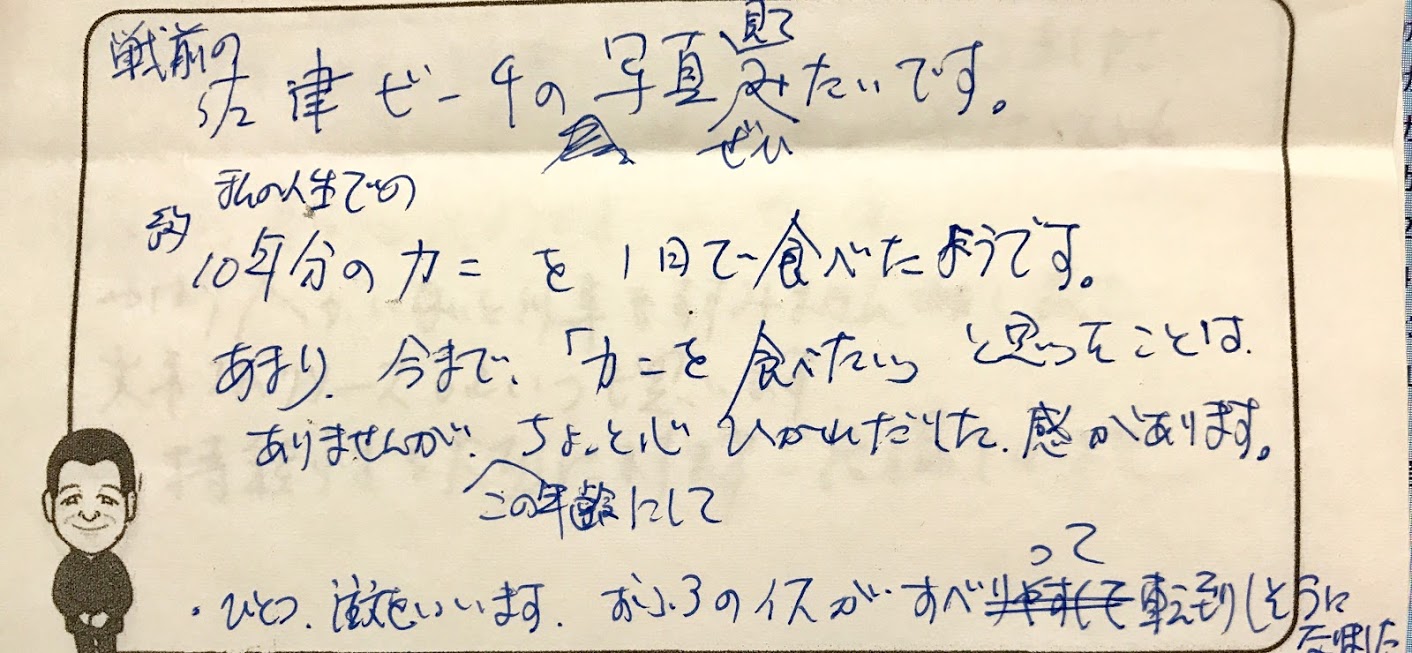 戦前の
佐津ビーチの写真みたいです。
見て
ぜひ
私の人生での
約
10年分のカニを1日で食べたようです。
あまり、今まで、「カニを食べたい」と思ったことは、
ありませんが、ちょっと心ひかれだした、感があります。
この年齢にして
・ひとつ、注文をいいます。おふろのイスが、すべ
って
転倒しそうに
なりました